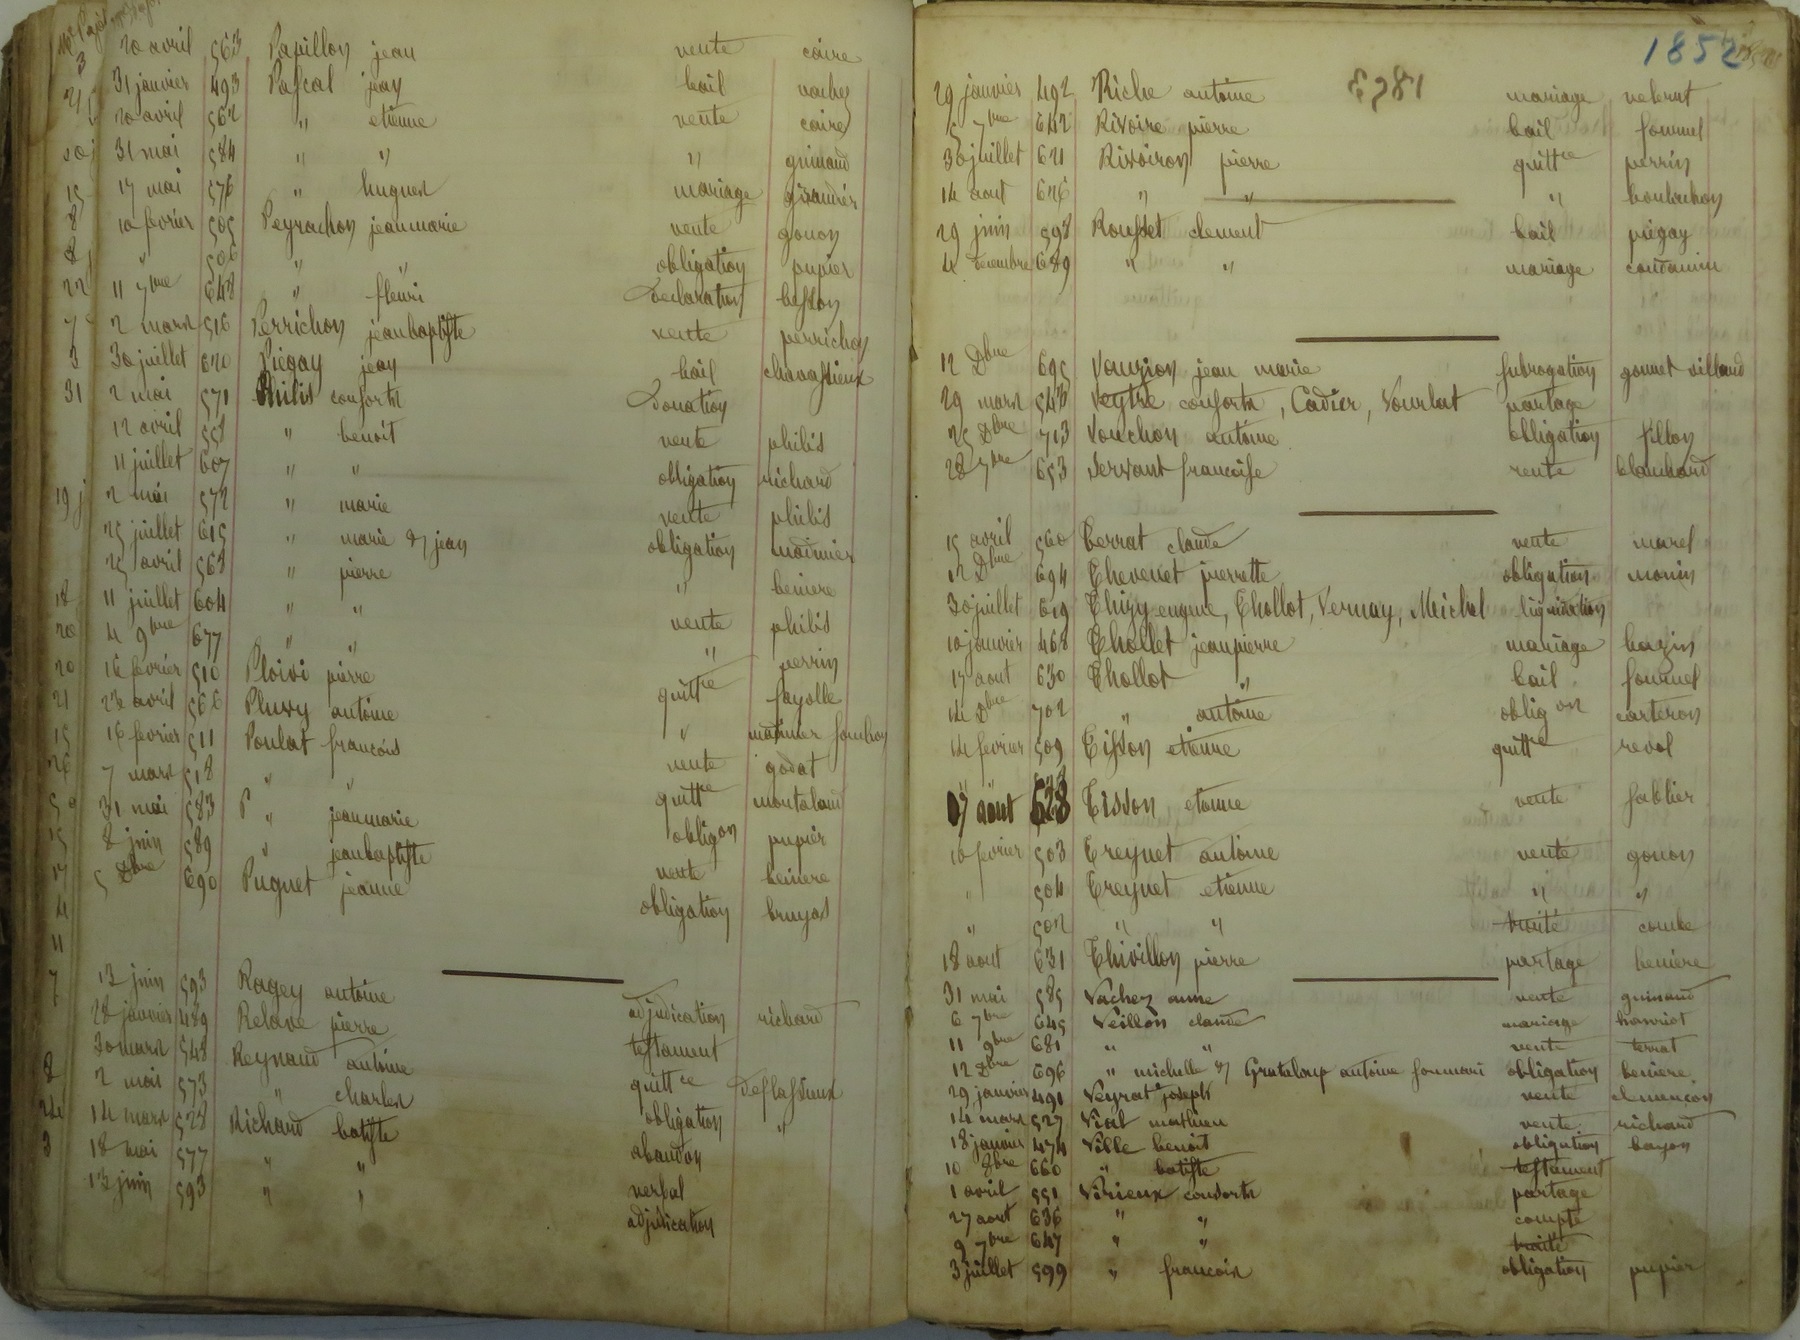 20 avril 563 Papillon jean vente coire
31 janvier 493 Pascal jean bail vachez
20 avril 562 " etienne vente coire
31 mai 584 " " " guinand
17 mai 576 " hugues mariage giraudier
10 fevrier 505 Peyrachon jeanmarie vente gonon
" 506 " " obligation pupier
11 7bre 648 " fleuri Declaration besson
2 mars 516 Perrichon jeanbaptiste vente perrichon
30 juillet 620 Piegay jean bail chavassieux
2 mai 571 Philis consorts Donation
12 avril 558 " benoit vente philis
11 juillet 607 " " obligation richard
2 mai 572 " marie vente philis
25 juillet 615 " marie & jean obligation madinier
25 avril 568 " pierre " beniere
11 juillet 604 " " vente philis
4 9bre 677 " " " perrin
16 fevrier 510 Ploivi pierre quittce fayolle
23 avril 566 Pluvy antoine "
16 fevrier 511 Poulat francois vente godat
7 mars 518 " " quittce montaland
31 mai 583 P " jeanmarie obligon pupier
8 juin 589 " jeanbaptiste vente beniere
5 Dbre 690 Puguet jeanne obligation bruyas
13 juin 593 Ragey antoine adjudication richard
28 janvier 489 Relave pierre testament
30 mars 548 Reynaud antoine quittce Deflassieux
2 mai 573 " charles obligation "
14 mars 528 Richard batiste abandon
18 mai 577 " " verbal
13 juin 593 " " adjudication
1852
E281
29 janvier 492 Riche antoine mariage
5 7bre 642 Rivoire pierre bail fournel
30 juillet 621 Rivoiron pierre quittce perrin
14 aout 626 " " " boutachon
29 juin 598 Rousset clement bail piegay
4 Decembre 689 " " mariage condamin
12 Dbre 695 Vouzion jean marie subrogation gonnet sillaud
29 mars 546 Seytre consorts, Cadier, Vourlat partage
25 Dbre 713 Souchon antoine obligation fillon
28 7bre 653 Servant francoise vente blanchard
15 avril 560 Terrat claude vente morel
12 Dbre 694 Thevenet pierrette obligation monin
30 juillet 619 Thizy eugene, Thollot, Vernay, Michel liquidation
10 janvier 468 Thollet jeanpierre mariage bazin
17 aout 630 Thollot " bail fournel
14 Dbre 702 " antoine obligon carteron
14 fevrier 509 Tisson etienne quittce revol
17 aout 628 Tisson etienne vente sablier
10 fevrier 503 Treynet antoine vente gonon
" 504 Treynet etienne " "
" 502 " " traité combe
18 aout 631 Thivillon pierre partage beniere
31 mai 585 Vachez anne vente guinand
6 7bre 645 Veillon claude mariage
11 9bre 681 " " vente terrat
12 Dbre 696 " michelle & Grataloup antoine obligation beniere
29 janvier 491 Veyrat joseph vente clemençon
14 mars 527 Vial mathieu vente richard
18 janvier 474 Ville benoit obligation bayon
10 8bre 660 " batiste testament
1 avril 551 Virieux consorts partage
27 aout 636 " " compte
9 7bre 647 " " traité
3 juillet 599 " francois obligation pupier